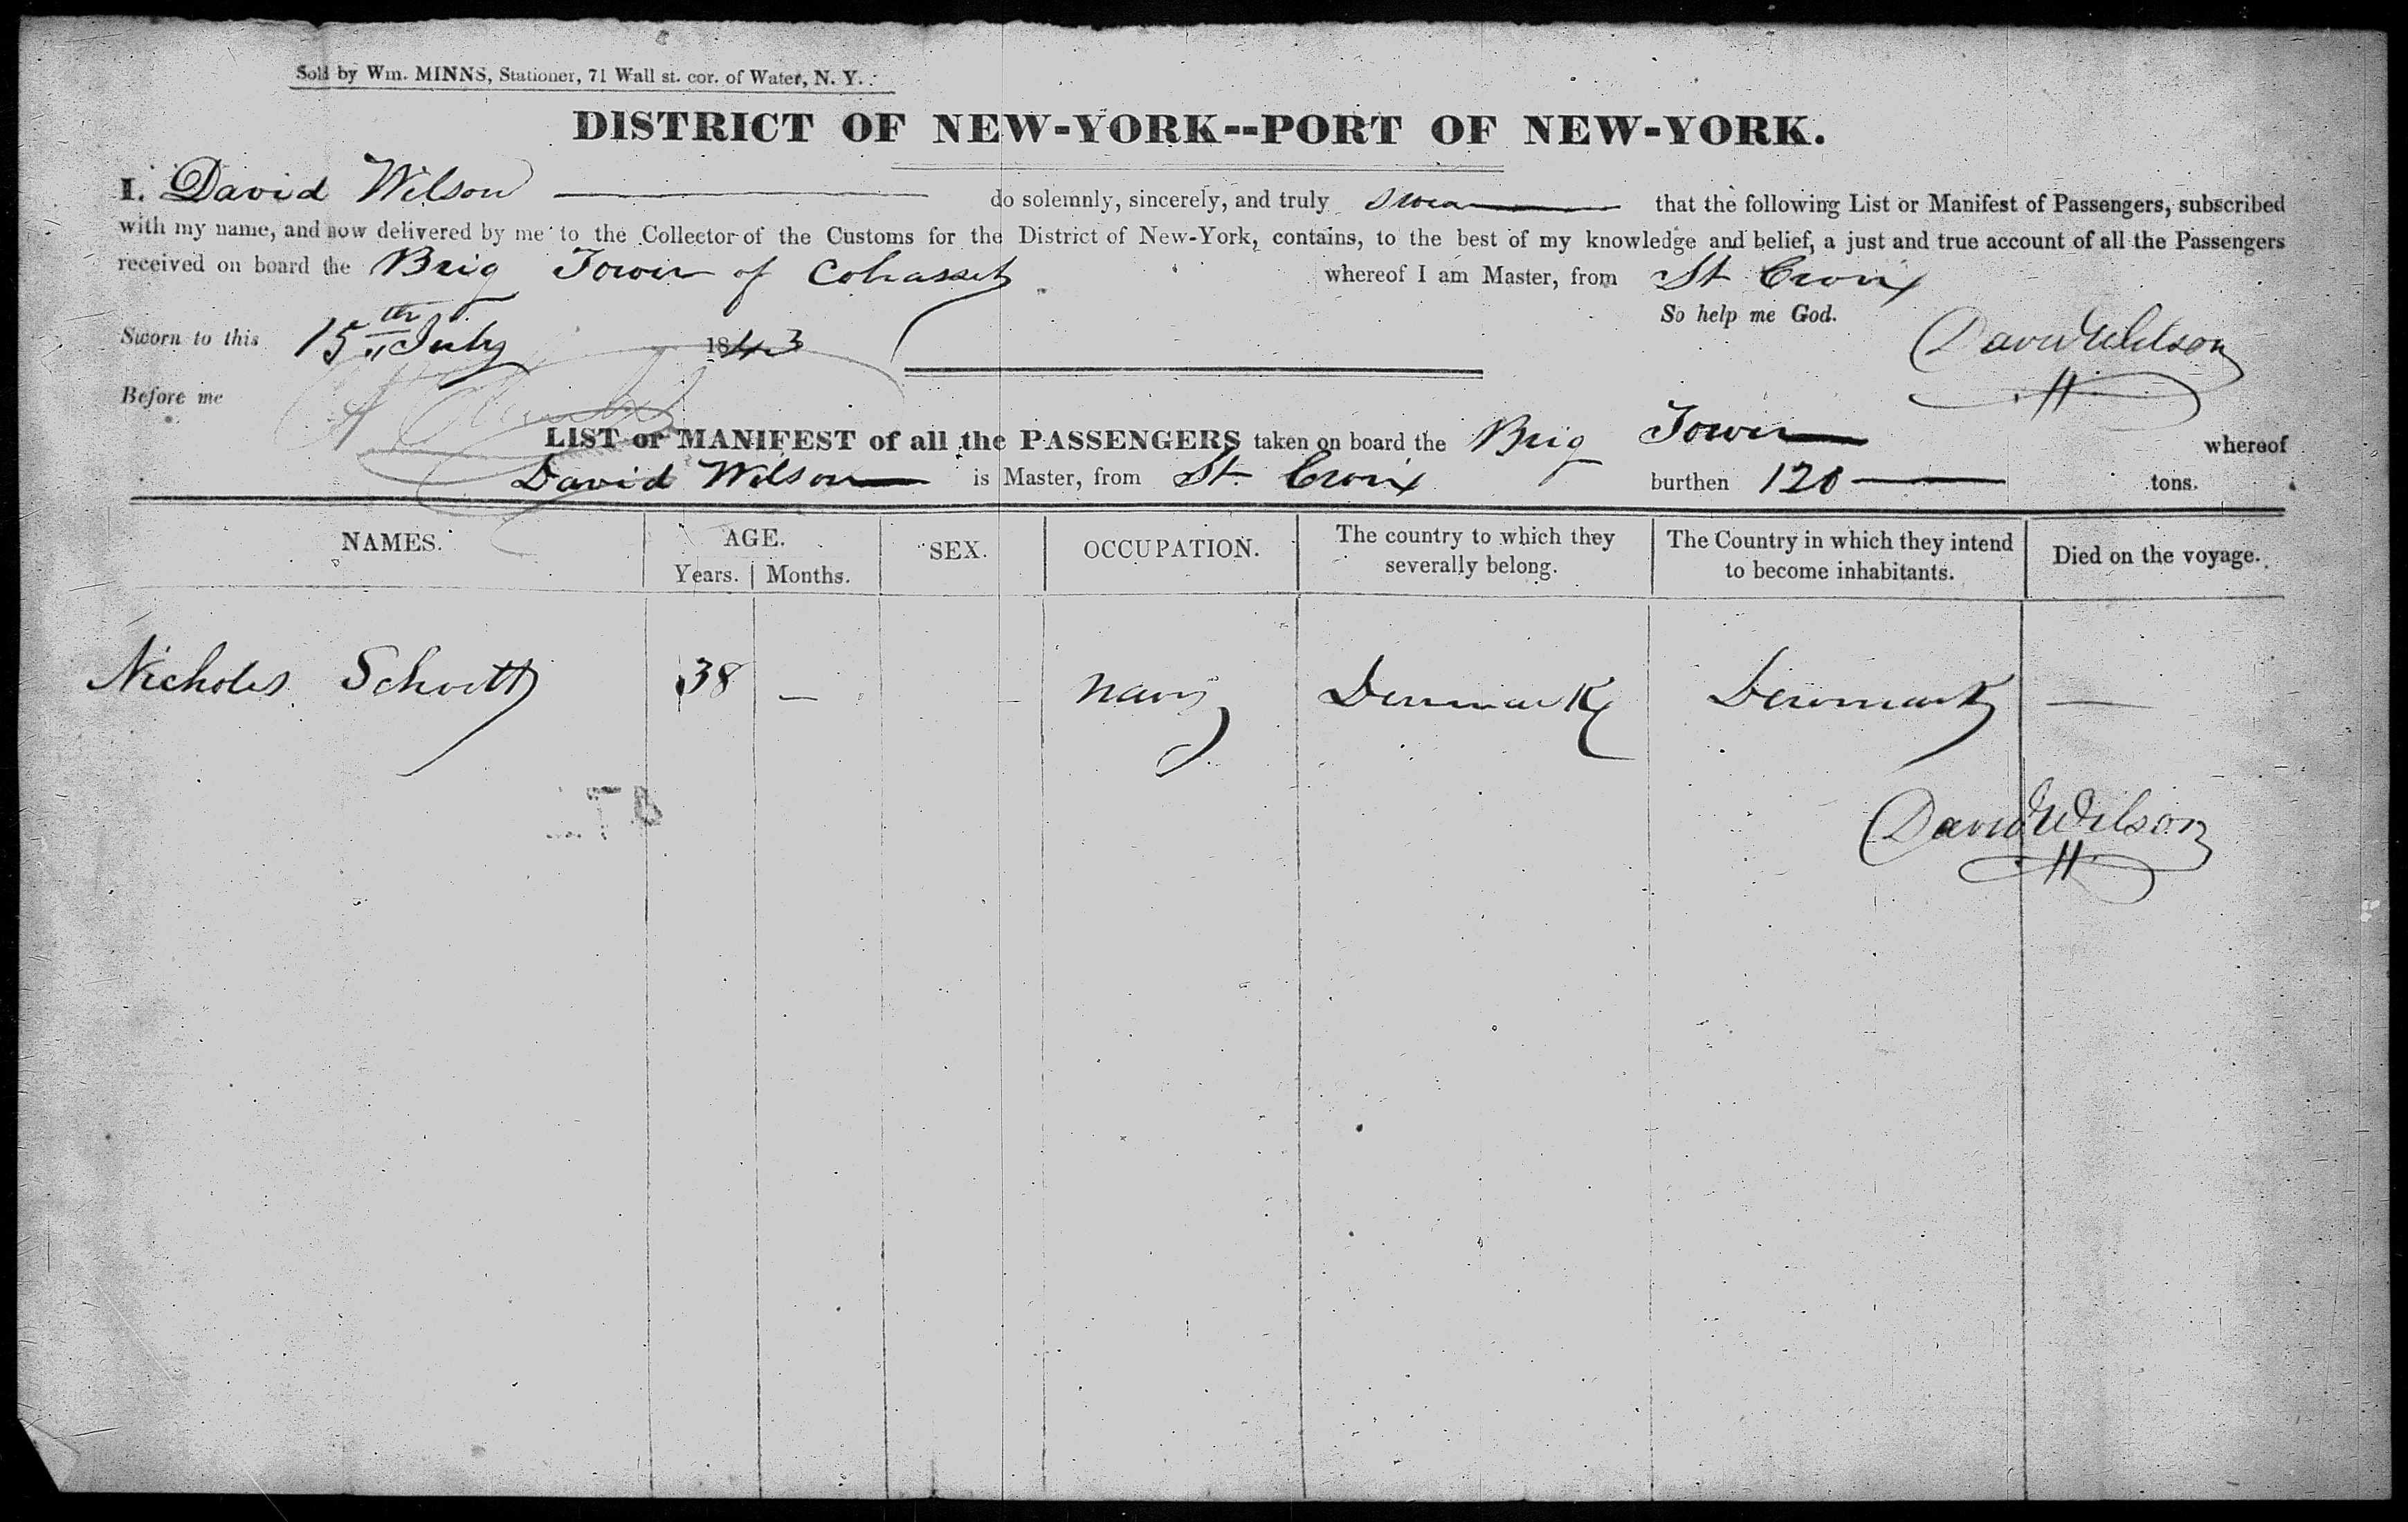 Sold by Wm. MINNS, Stationer, 71 Wall st. cor. of Water, N. Y.
DISTRICT OF NEW-YORK--PORT OF NEW-YORK.
I. David Wilson do solemnly, sincerely, and truly swear that the following List or Manifest of Passengers, subscribed
with my name, and now delivered by me to the Collector of the Customs for the District of New-York, contains, to the best of my knowledge and belief, a just and true account of all the Passengers
received on board the Brig Tower of Cohasset whereof I am Master, from St Croix
So help me God.
Sworn to this 15th July 1843
David Wilson
Before me
LIST or MANIFEST of all the PASSENGERS taken on board the Brig Tower whereof
David Wilson is Master, from St. Croix burthen 120 tons.
NAMES. AGE. SEX. OCCUPATION. The country to which they severally belong. The Country in which they intend to become inhabitants. Died on the voyage.
Years. Months.
Nicholes 38 — navy Denmark Denmark —
David Wilson